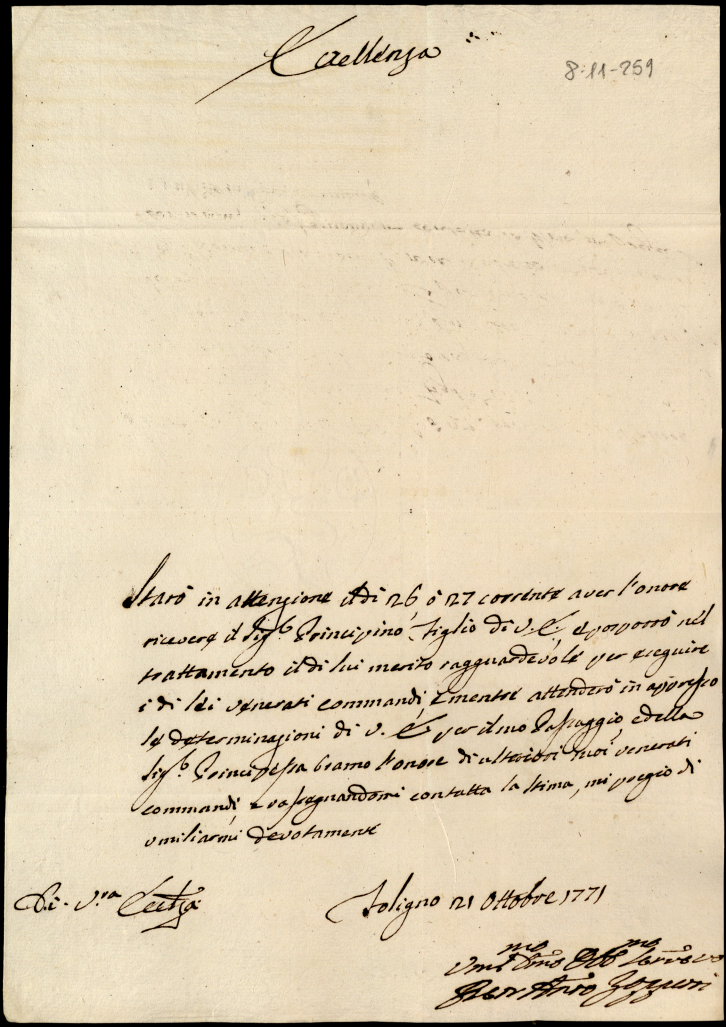 Eccellenza
8-11-259
Starò in attenzione il dì 26 ò 27 corrente aver l'onore
ricevere il Sigr. Principino, Figlio di V. E., e porporrò nel
trattamento il di lui merito ragguardevole per eseguire
i di lei venerati commandi, e mentre attenderò in appresso
le determinazioni di V. E. per il suo Passaggio, e della
Sigra. Principessa bramo l'onore di ulteriori suoi venerati
commandi, e rassegnandomi con tutta la stima, mi pregio di
umiliarmi devotamente
Di V.ra Eccza
Foligno 21 Ottobre 1771
Umo Dmo Obbmo Servo vo